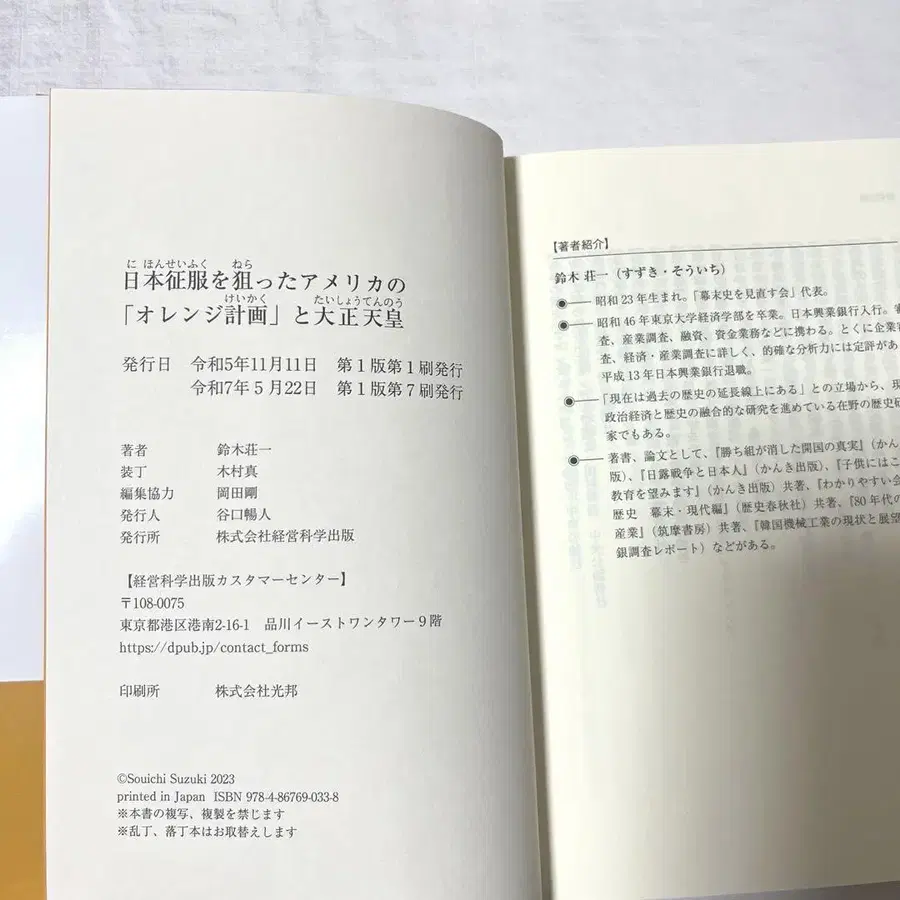 にほんせいふく ねら
日本征服を狙ったアメリカの
けいかく たいしょうてんのう
「オレンジ計画」と大正天皇
発行日 令和5年11月11日 第1版第1刷発行
令和7年5月22日 第1版第7刷発行
著者 鈴木荘一
装丁 木村真
編集協力 岡田剛
発行人 谷口暢人
発行所 株式会社経営科学出版
【経営科学出版カスタマーセンター】
〒108-0075
東京都港区港南2-16-1 品川イーストワンタワー9階
https://dpub.jp/contact_forms
印刷所 株式会社光邦
©Souichi Suzuki 2023
printed in Japan ISBN 978-4-86769-033-8
※本書の複写、複製を禁じます
※乱丁、落丁本はお取替えします
【著者紹介】
鈴木 荘一（すずき・そういち）
昭和23年生まれ。「幕末史を見直す会」代表。
昭和46年東京大学経済学部を卒業。日本興業銀行入行。審
査、産業調査、融資、資金業務などに携わる。とくに企業審
査、経済・産業調査に詳しく、的確な分析力には定評があ
平成13年日本興業銀行退職。
「現在は過去の歴史の延長線上にある」との立場から、現
政治経済と歴史の融合的な研究を進めている在野の歴史研
家でもある。
著書、論文として、『勝ち組が消した開国の真実』（かん
版）、『日露戦争と日本人』（かんき出版）、『子供にはこ
教育を望みます』（かんき出版）共著、『わかりやすい会
歴史 幕末・現代編』（歴史春秋社）共著、『80年代の
産業』（筑摩書房）共著、『韓国機械工業の現状と展望
銀調査レポート）などがある。